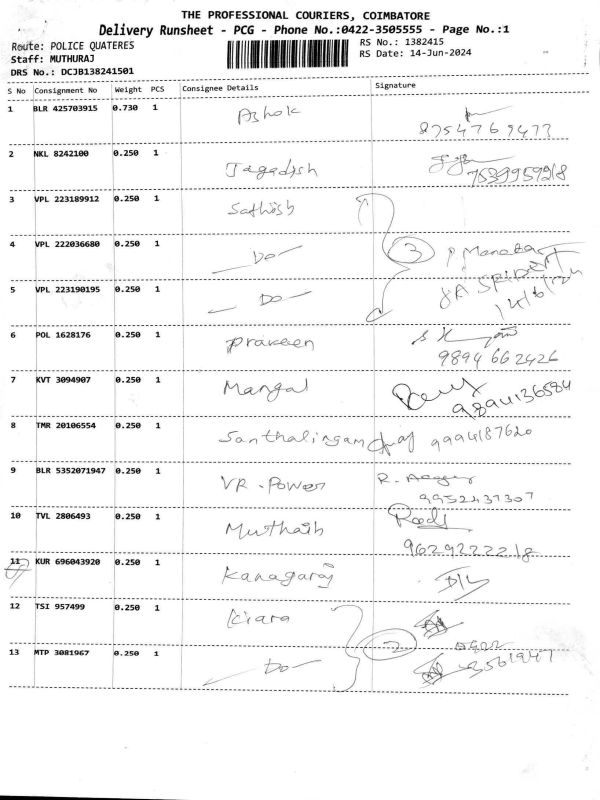 THE PROFESSIONAL COURIERS, COIMBATORE
Delivery Runsheet - PCG - Phone No.:0422-3505555 - Page No.:1
Route: POLICE QUATERES
RS No.: 1382415
Staff: MUTHURAJ
RS Date: 14-Jun-2024
DRS No.: DCJB138241501
S No Consignment No Weight PCS Consignee Details Signature
1 BLR 425703915 0.730 1 Ashok
8754769477
2 NKL 8242100 0.250 1 Jagadish
7539959218
3 VPL 223189912 0.250 1 Sathish
4 VPL 222036680 0.250 1 — Do — 3
5 VPL 223190195 0.250 1 — Do — 14/6/24
6 POL 1628176 0.250 1 Praveen
9894 662426
7 KVT 3094907 0.250 1 Mangal
9894136584
8 TMR 20106554 0.250 1 Santhalingam 9994187620
9 BLR 5352071947 0.250 1 VR. Power R.
9952437307
10 TVL 2806493 0.250 1 Muthaih
9629222218
11 KUR 696043920 0.250 1 Kanagaraj
12 TSI 957499 0.250 1 Kiara
2
13 MTP 3081967 0.250 1 — Do —